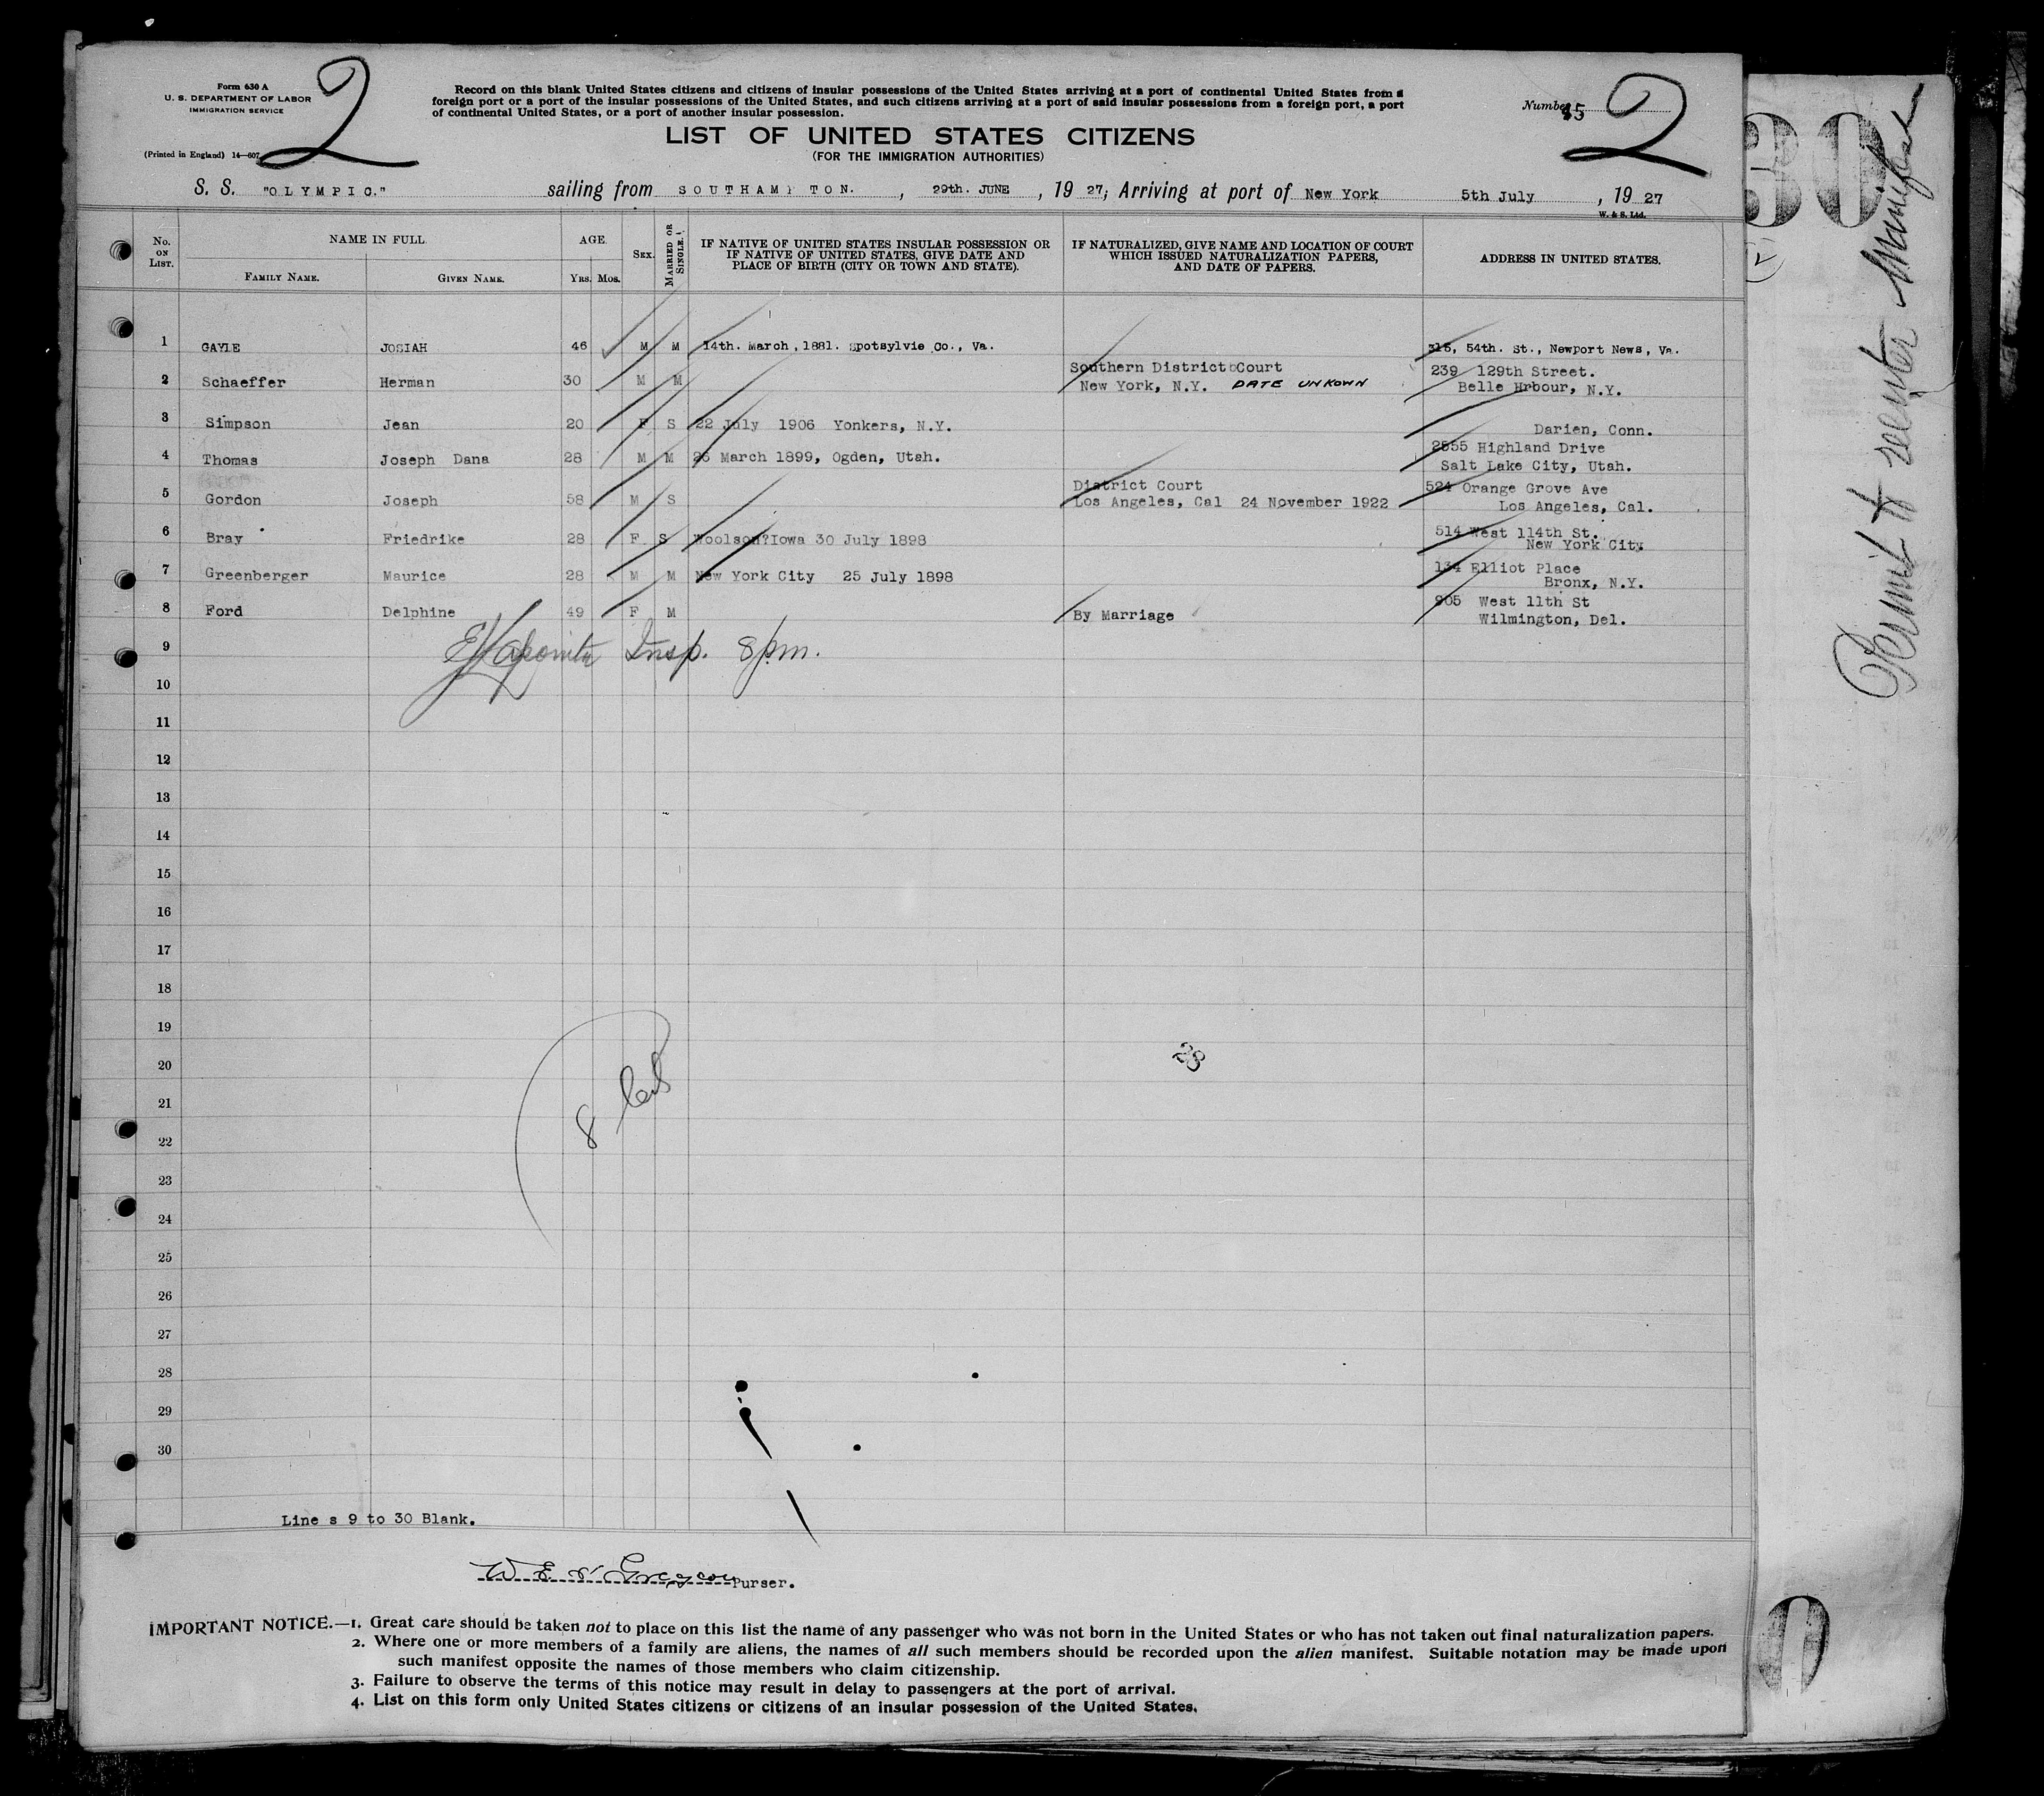 Form 630 A
U. S. DEPARTMENT OF LABOR
IMMIGRATION SERVICE
(Printed in England) 14—607
2
Record on this blank United States citizens and citizens of insular possessions of the United States arriving at a port of continental United States from a
foreign port or a port of the insular possessions of the United States, and such citizens arriving at a port of said insular possessions from a foreign port, a port
of continental United States, or a port of another insular possession.
Number
2
LIST OF UNITED STATES CITIZENS
(FOR THE IMMIGRATION AUTHORITIES)
S. S. "OLYMPIC." sailing from SOUTHAMPTON. , 29th. JUNE , 19 27; Arriving at port of New York 5th July , 19 27
W. & S. Ltd.
No. ON LIST. NAME IN FULL. AGE. SEX. MARRIED OR SINGLE. IF NATIVE OF UNITED STATES INSULAR POSSESSION OR IF NATIVE OF UNITED STATES, GIVE DATE AND PLACE OF BIRTH (CITY OR TOWN AND STATE). IF NATURALIZED, GIVE NAME AND LOCATION OF COURT WHICH ISSUED NATURALIZATION PAPERS, AND DATE OF PAPERS. ADDRESS IN UNITED STATES.
FAMILY NAME. GIVEN NAME. YRS. MOS.
1 GAYLE JOSIAH 46 M M 14th. March, 1881. Spotsylvie Co., Va. 315, 54th. St., Newport News, Va.
2 Schaeffer Herman 30 M M Southern District Court 239 129th Street.
New York, N.Y. DATE UNKOWN Belle Hrbour, N.Y.
3 Simpson Jean 20 F S 22 July 1906 Yonkers, N.Y. Darien, Conn.
4 Thomas Joseph Dana 28 M M 26 March 1899, Ogden, Utah. 2555 Highland Drive
Salt Lake City, Utah.
5 Gordon Joseph 58 M S District Court 524 Orange Grove Ave
Los Angeles, Cal 24 November 1922 Los Angeles, Cal.
6 Bray Friedrike 28 F S Woolson?Iowa 30 July 1898 514 West 114th St.
New York City
7 Greenberger Maurice 28 M M New York City 25 July 1898 134 Elliot Place
Bronx, N.Y.
8 Ford Delphine 49 F M By Marriage 905 West 11th St
Wilmington, Del.
9 Insp. 8 pm.
10
11
12
13
14
15
16
17
18
19
20 28
21
22 8
23
24
25
26
27
28
29
30
Line s 9 to 30 Blank.
Purser.
IMPORTANT NOTICE.—1. Great care should be taken not to place on this list the name of any passenger who was not born in the United States or who has not taken out final naturalization papers.
2. Where one or more members of a family are aliens, the names of all such members should be recorded upon the alien manifest. Suitable notation may be made upon
such manifest opposite the names of those members who claim citizenship.
3. Failure to observe the terms of this notice may result in delay to passengers at the port of arrival.
4. List on this form only United States citizens or citizens of an insular possession of the United States.
30
Permit to reenter Manifest